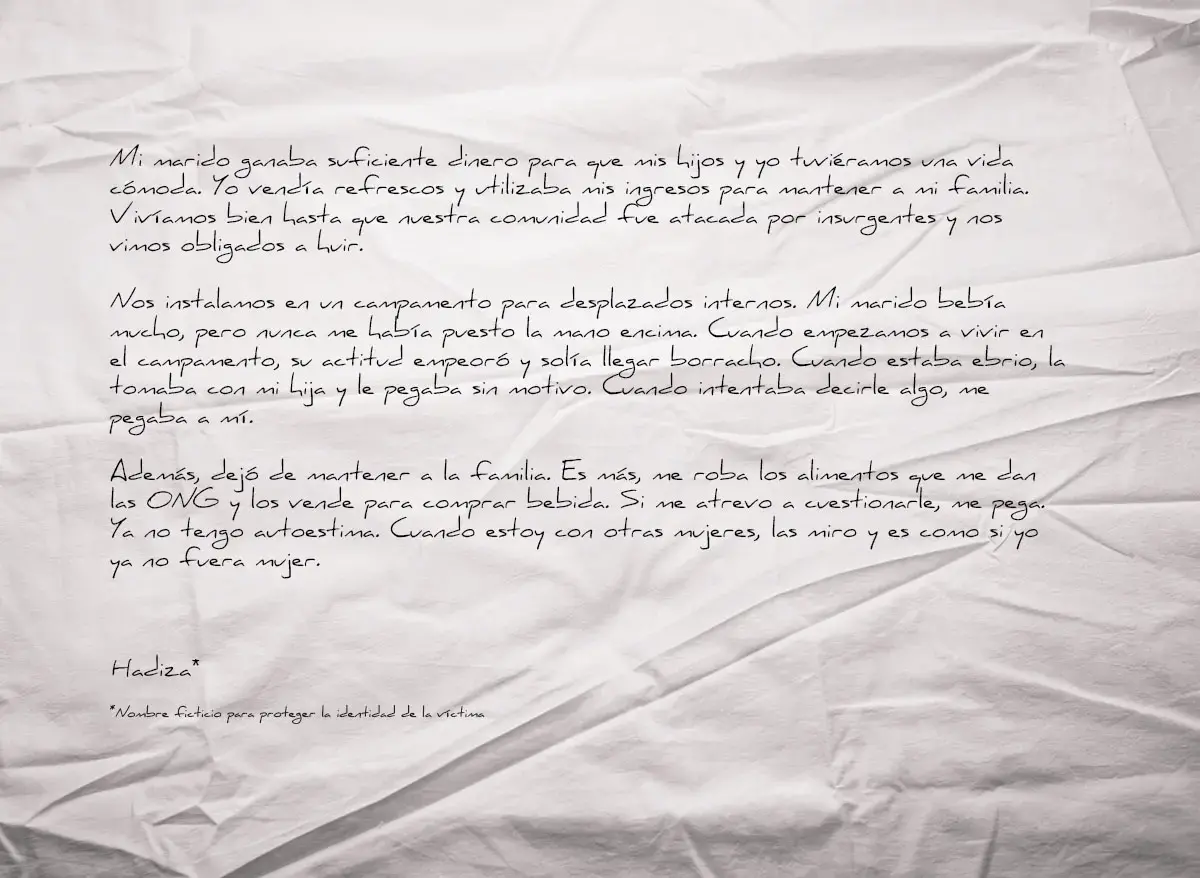 Mi marido ganaba suficiente dinero para que mis hijos y yo tuviéramos una vida
cómoda. Yo vendía refrescos y utilizaba mis ingresos para mantener a mi familia.
Vivíamos bien hasta que nuestra comunidad fue atacada por insurgentes y nos
vimos obligados a huir.
Nos instalamos en un campamento para desplazados internos. Mi marido bebía
mucho, pero nunca me había puesto la mano encima. Cuando empezamos a vivir en
el campamento, su actitud empeoró y solía llegar borracho. Cuando estaba ebrio, la
tomaba con mi hija y le pegaba sin motivo. Cuando intentaba decirle algo, me
pegaba a mí.
Además, dejó de mantener a la familia. Es más, me roba los alimentos que me dan
las ONG y los vende para comprar bebida. Si me atrevo a cuestionarle, me pega.
Ya no tengo autoestima. Cuando estoy con otras mujeres, las miro y es como si yo
ya no fuera mujer.
Hadiza*
*Nombre ficticio para proteger la identidad de la víctima